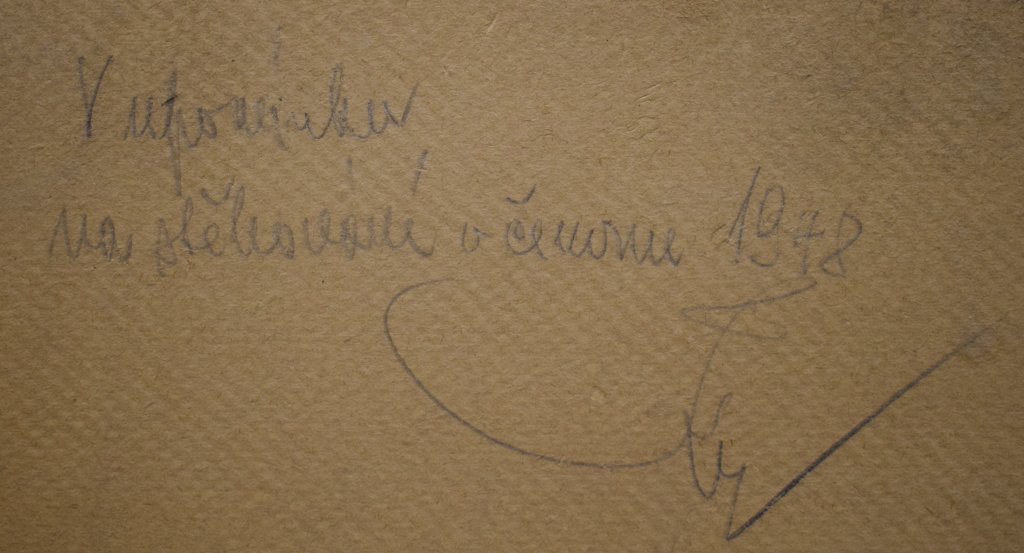 V upomínku
na stěhování v červnu 1978